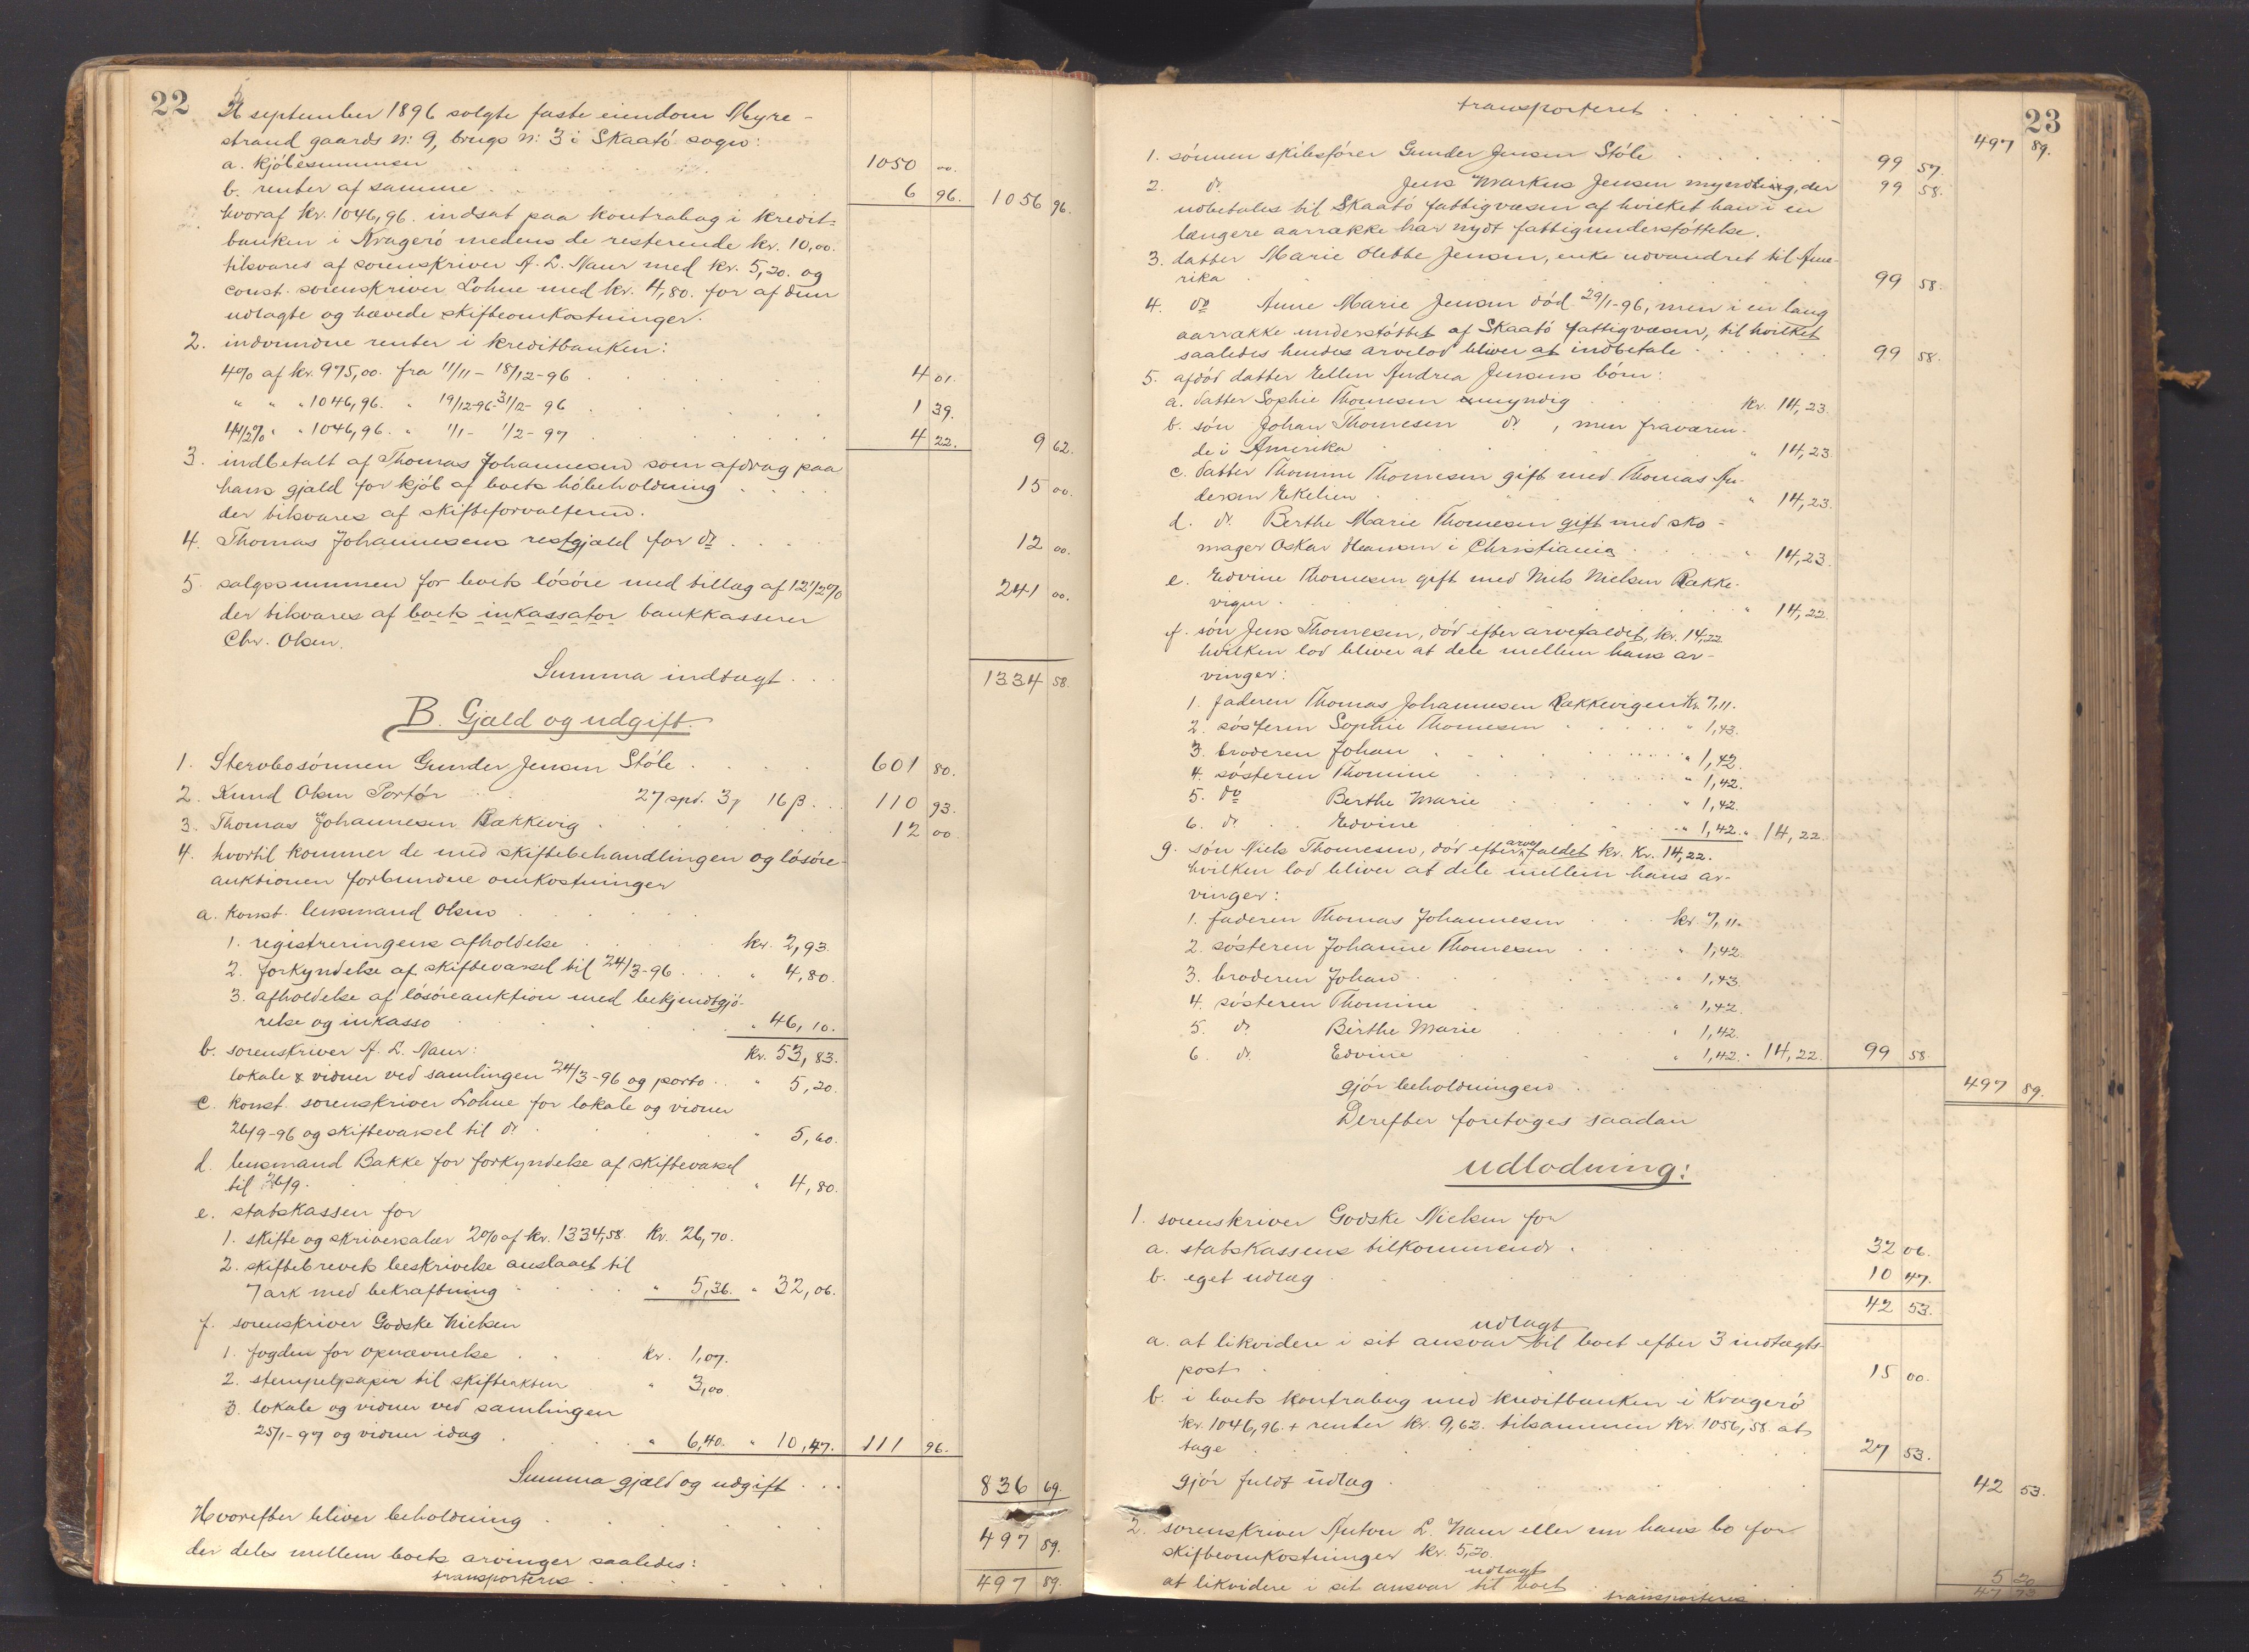 22
september 1896 solgte faste eiendom Myre-
strand gaards n: 9, brugs n: 3 i Skaatö sogn:
a. kjöbesummen 1050 00.
b. renter af samme 6 96. 1056 96.
hvoraf kr. 1046,96. indsat paa kontrabog i kredit-
banken i Kragerö medens de resterende kr. 10,00.
tilsvares af sorenskriver A. L. Naur med kr. 5,20. og
const. sorenskriver Lohne med kr. 4,80. for af dem
udlagte og hævede skifteomkostninger.
2. indvundne renter i kreditbanken:
4% af kr. 975,00. fra 11/11 - 18/12-96 4 01.
" " " 1046,96. " 19/12-96 - 31/12-96 1 39.
4 1/2% " " 1046,96. " 1/1 - 1/2-97 4 22. 9 62.
3. indbetalt af Thomas Johannesen som afdrag paa
hans gjæld for kjöb af boets höbeholdning 15 00.
der tilsvares af skifteforvalteren.
4. Thomas Johannesens restgjæld for do 12 00.
5. salgssummen for boets lösöre med tillæg af 12 1/2% 241 00.
der tilsvares af boets inkassator bankkasserer
Chr. Olsen.
Summa indtægt 1334 58.
B. Gjæld og udgift.
1. Stervbosönnen Gunder Jensen Stöle 601 80.
2. Knud Olsen Portör 27 spd. 3 16 ß 110 93.
3. Thomas Johannesen Rakkevig 12 00.
4. hvortil kommer de med skiftebehandlingen og lösöre-
auktionen forbundne omkostninger
a. konst. lensmand Olsen
1. registreringens afholdelse kr. 2,93.
2. forkyndelse af skiftevarsel til 24/3-96 " 4,80.
3. afholdelse af lösöreauktion med bekjendtgjö-
relse og inkasso " 46,10.
kr. 53,83.
b. sorenskriver A. L. Naur:
lokale & vidner ved samlingen 24/3-96 og porto " 5,20.
c. konst. sorenskriver Lohne for lokale og vidner
26/9-96 og skiftevarsel til do " 5,60.
d. lensmand Bakke for forkyndelse af skiftevarsel
til 26/9. " 4,80.
e. statskassen for
1. skifte og skriversalær 2% af kr. 1334,58. kr. 26,70.
2. skiftebrevets beskrivelse anslaaet til
7 ark med bekræftning " 5,36. " 32,06.
f. sorenskriver Godske Nielsen
1. fogden for opnævnelse kr. 1,07.
2. stempelpapir til skifteakten " 3,00.
3. lokale og vidner ved samlingen
25/1-97 og vidner idag " 6,40. " 10,47. 111 96.
Summa gjæld og udgift 836 69.
Hvorefter bliver beholdning 497 89.
der deles mellem boets arvinger saaledes:
transporteres 497 89.
23
transporteret 497 89.
1. sönnen skibsförer Gunder Jensen Stöle 99 57.
2. do Jens Markus Jensen myndig, der 99 58.
udbetales til Skaatö fattigvæsen af hvilket han i en
længere aarrække har nydt fattigunderstöttelse.
3. datter Marie Olebbe Jensen, enke udvandret til Ame-
rika 99 58.
4. do Anne Marie Jensen död 29/1-96, men i en lang
aarrække understöttet af Skaatö fattigvæsen, til hvilket
saaledes hendes arvelod bliver at indbetale 99 58.
5. afdöd datter Ellen Andrea Jensens börn:
a. datter Sophie Thomesen myndig kr. 14,23.
b. sön Johan Thomesen do, men fraværen-
de i Amerika " 14,23.
c. datter Thomine Thomesen gift med Thomas An-
dersen Ekelien " 14,23.
d. do Berthe Marie Thomesen gift med sko-
mager Oskar Hansen i Christiania " 14,23.
e. Edvine Thomesen gift med Niels Nielsen Rakke-
vigen " 14,22.
f. sön Jens Thomesen, död efter arvefaldet, kr. 14,22
hvilken lod bliver at dele mellem hans ar-
vinger:
1. faderen Thomas Johannesen Rakkevigen kr. 7,11.
2. sösteren Sophie Thomesen " 1,43.
3. broderen Johan " 1,42.
4. sösteren Thomine " 1,42.
5. do Berthe Marie " 1,42.
6. do Edvine " 1,42. " 14,22.
g. sön Niels Thomesen, död efter arvefaldet kr. Kr. 14,22.
hvilken lod bliver at dele mellem hans ar-
vinger:
1. faderen Thomas Johannesen kr. 7,11.
2. sösteren Johanne Thomesen " 1,42.
3. broderen Johan " 1,43.
4. sösteren Thomine " 1,42.
5. do Berthe Marie " 1,42.
6. do Edvine " 1,42. " 14,22. 99 58.
gjör beholdningen 497 89.
Derefter foretages saadan
udlodning:
1. sorenskriver Godske Nielsen for
a. statskassens tilkommende 32 06.
b. eget udlæg 10 47.
42 53.
udlagt
a. at likvidere i sit ansvar til boet efter 3 indtægts-
post 15 00.
b. i boets kontrabog med kreditbanken i Kragerö
kr. 1046,96. + renter kr. 9,62. tilsammen kr. 1056,58. at
tage 27 53.
gjör fuldt udlæg 42 53.
2. sorenskriver Anton L. Naur eller nu hans bo for
skifteomkostninger kr. 5,20.
udlagt
at likvidere i sit ansvar til boet 5 20
transporteres 47 73